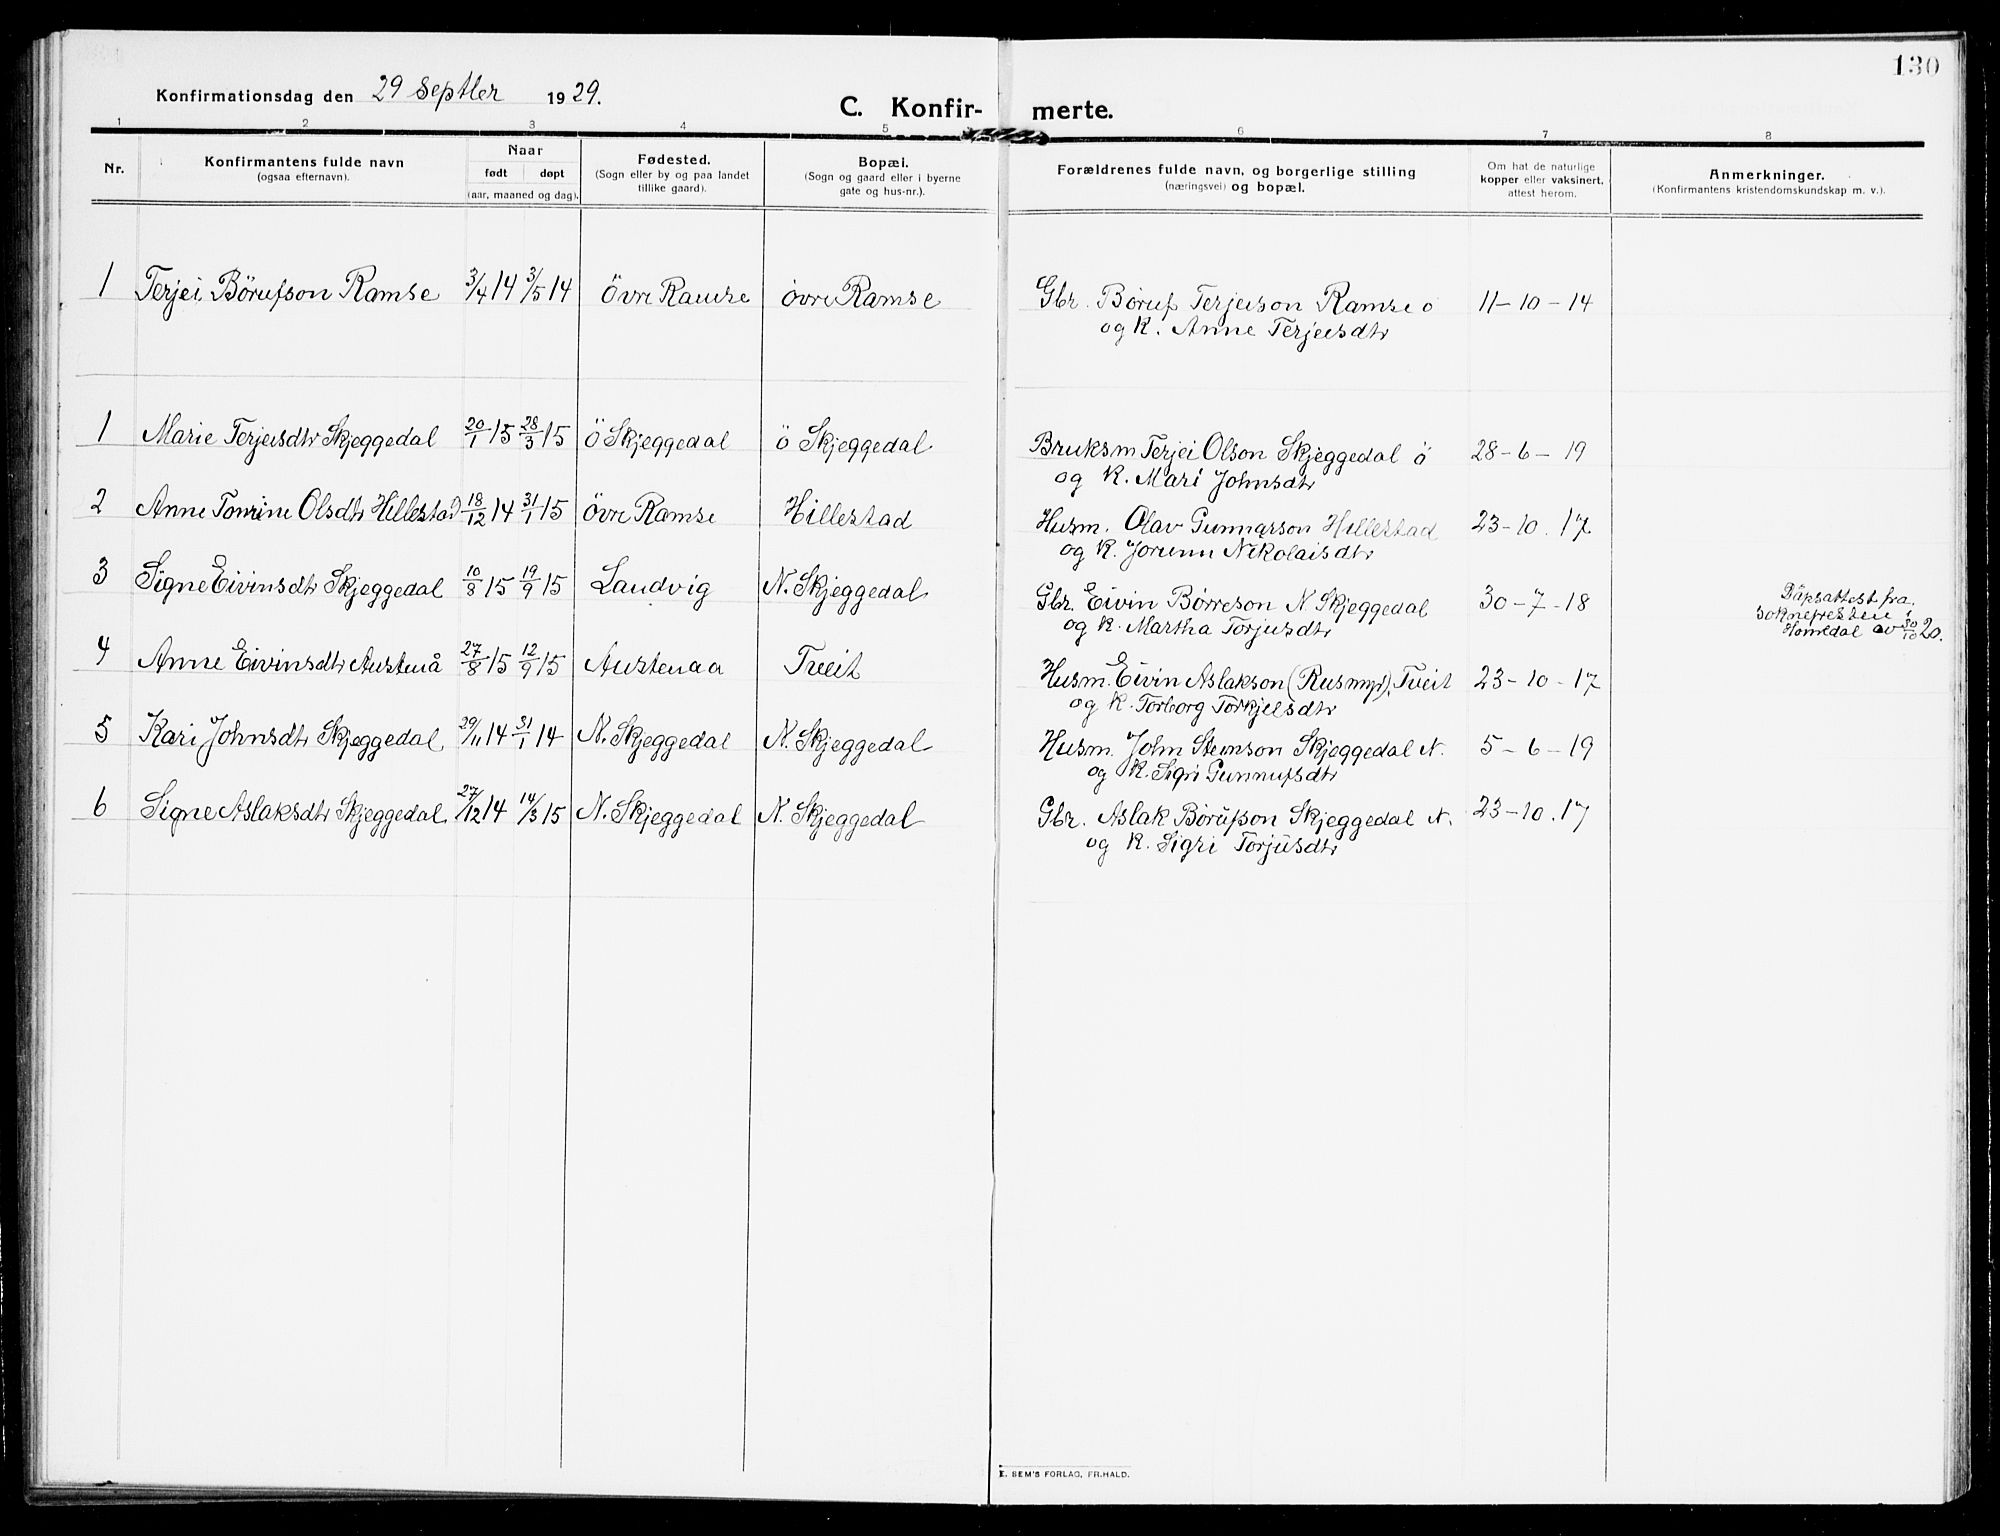 130
Konfirmationsdag den 29 Septber 1929.
C. Konfir- merte.
1 2 3 4 5 6 7 8
Nr.
Konfirmantens fulde navn
(ogsaa efternavn).
Naar
født døpt
(aar, maaned og dag).
Fødested.
(Sogn eller by og paa landet
tillike gaard).
Bopæl.
(Sogn og gaard eller i byerne
gate og hus-nr.).
Forældrenes fulde navn, og borgerlige stilling
(næringsvei) og bopæl.
Om hat de naturlige
kopper eller vaksinert,
attest herom.
Anmerkninger.
(Konfirmantens kristendomskundskap m. v.).
1 Terjei Børufson Ramse 3/4 14 3/5 14 Øvre Ramse øvre Ramse Gbr. Børuf Terjeison Ramse ø 11-10-14
og K. Anne Terjeisdtr
1 Marie Terjeisdtr Skjeggedal 20/1 15 28/3 15 Ö Skjeggedal ö Skjeggedal Bruksm Terjei Olson Skjeggedal ö 28-6-19
og K. Mari Johnsdtr
2 Anne Tomine Olsdtr Hillestad 18/12 14 31/1 15 övre Ramse Hillestad Husm. Olav Gunnarson Hillestad 23-10.17
og K. Jorunn Nikolaisdtr
3 Signe Eivinsdtr Skjeggedal 10/8 15 19/9 15 Landvig N. Skjeggedal Gbr. Eivin Børreson N Skjeggedal 30-7-18 Dåpsattest fra
og K. Martha Torjusdtr soknepresten i
Homedal av 30/10 20.
4 Anne Eivinsdtr Austenå 27/8 15 12/9 15 Austenaa Tveit Husm. Eivin Aslakson (Rusmyr), Tveit 23-10-17
og K. Torborg Torkjelsdtr
5 Kari Johnsdtr Skjeggedal 29/11 14 31/1 14 N. Skjeggedal N. Skjeggedal Husm. John Steinson Skjeggedal N. 5-6-19
og K. Sigri Gunnufsdtr
6 Signe Aslaksdtr Skjeggedal 27/12 14 14/3 15 N. Skjeggedal N. Skjeggedal Gbr. Aslak Børufson Skjeggedal N. 23-10.17
og K. Sigri Torjusdtr
E. SEM'S FORLAG, FR.HALD.